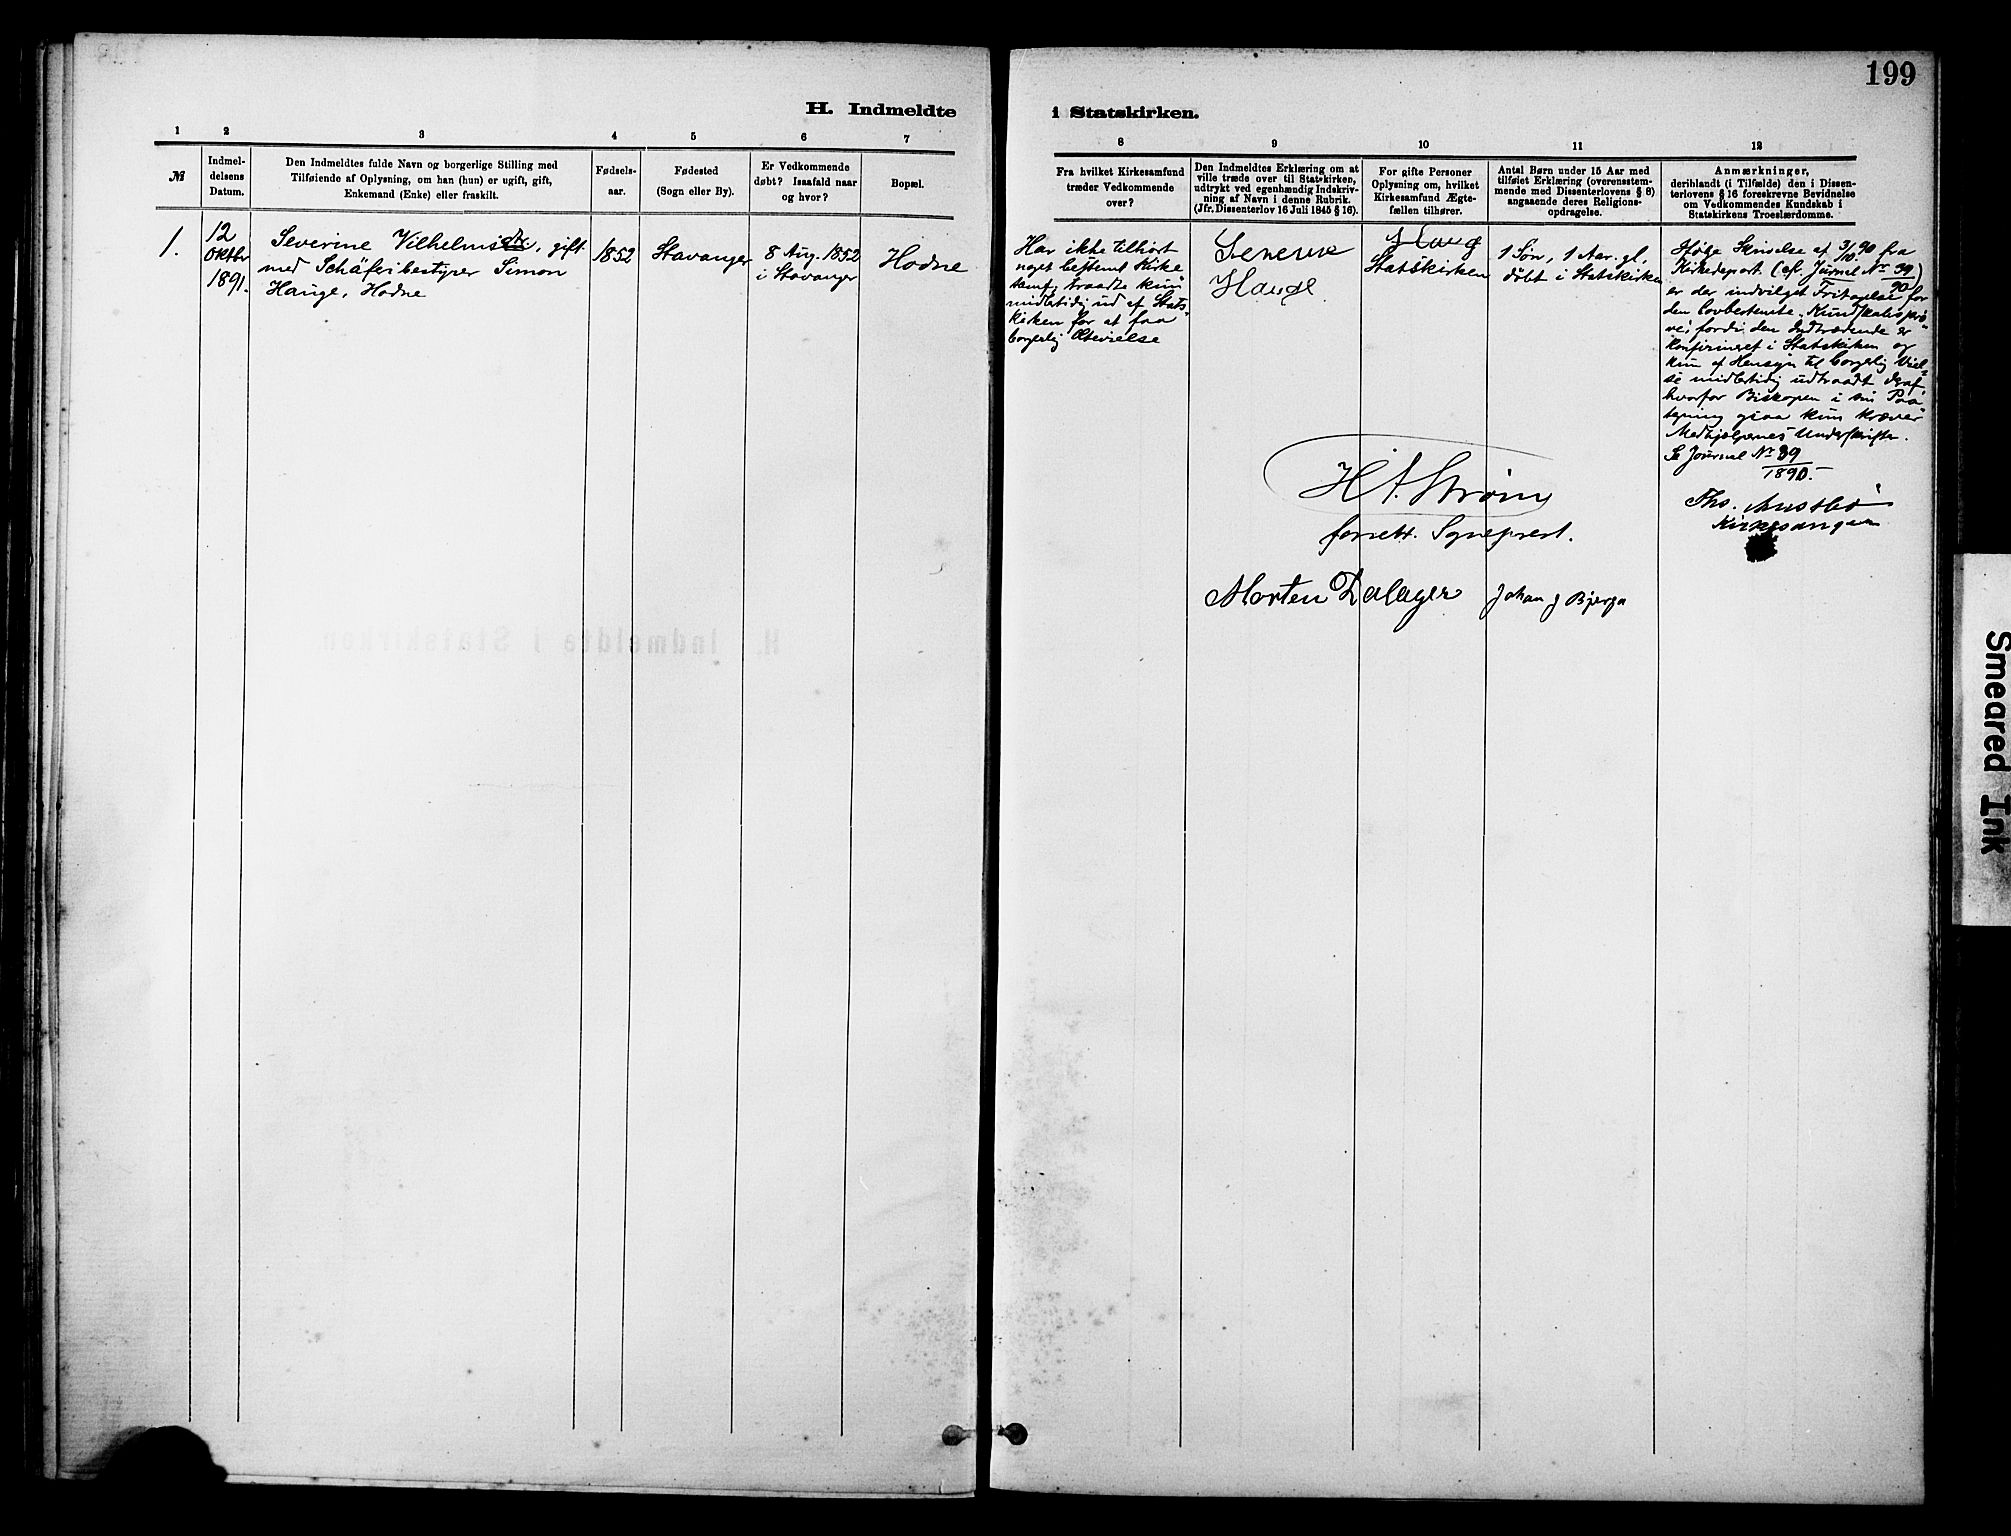 199
H. Indmeldte
i Statskirken.
1 2 3 4 5 6 7
№
Indmel-
delsens
Datum.
Den Indmeldtes fulde Navn og borgerlige Stilling med
Tilføiende af Oplysning, om han (hun) er ugift, gift,
Enkemand (Enke) eller fraskilt.
Fødsels-
aar.
Fødested
(Sogn eller By).
Er Vedkommende
døbt? Isaafald naar
og hvor?
Bopæl.
8 9 10 11 12
Fra hvilket Kirkesamfund
træder Vedkommende
over?
Den Indmeldtes Erklæring om at
ville træde over til Statskirken,
udtrykt ved egenhændig Indskriv-
ning af Navn i denne Rubrik.
(Jfr. Dissenterlov 16 Juli 1845 § 16).
For gifte Personer
Oplysning om, hvilket
Kirkesamfund Ægte-
fællen tilhører.
Antal Børn under 15 Aar med
tilføiet Erklæring (overensstem-
mende med Dissenterlovens § 8)
angaaende deres Religions-
opdragelse.
Anmærkninger,
deriblandt (i Tilfælde) den i Dissen-
terlovens § 16 foreskrevne Bevidnelse
om Vedkommendes Kundskab i
Statskirkens Troeslærdomme.
1.
12
Oktbr
1891.
Severine Vilhelmsdtr., gift
med Schäferibestyrer Simon
Hauge, Hodne
1852
Stavanger
8 Aug. 1852
i Stavanger
Hodne
Har ikke tilhørt
noget bestemt Kirke
samf, traadte kun
midlertidig ud af Stats-
kirken for at faa
borgerlig Ægtevielse
Severine
Hauge
Statskirken
1 Søn, 1 Aar gl.
døbt i Statskirken
Ifølge Skrivelse af 3/10 90 fra
Kirkedepart. (cf. Journal Nr 39/90)
er der indvilget Fritagelse for
den lovbestemte Kundskabsprø-
ve, fordi den Indtrædende er
konfirmeret i Statskirken og
kun af Hensyn til borgerlig Viel-
se midlertidig udtraadt deraf,
hvorfor Biskopen i sin Paa-
tegning ogsaa kun kræver
Medhjælpernes Underskrifter.
Se Journal Nr 39
1890.
Ths. Austbø
Kirkesanger
H A. Strøm
forrett. Sogneprest.
Morten Dalager Johan J Bjerga
H. Indmeldte i Statskirken
Smeared Ink